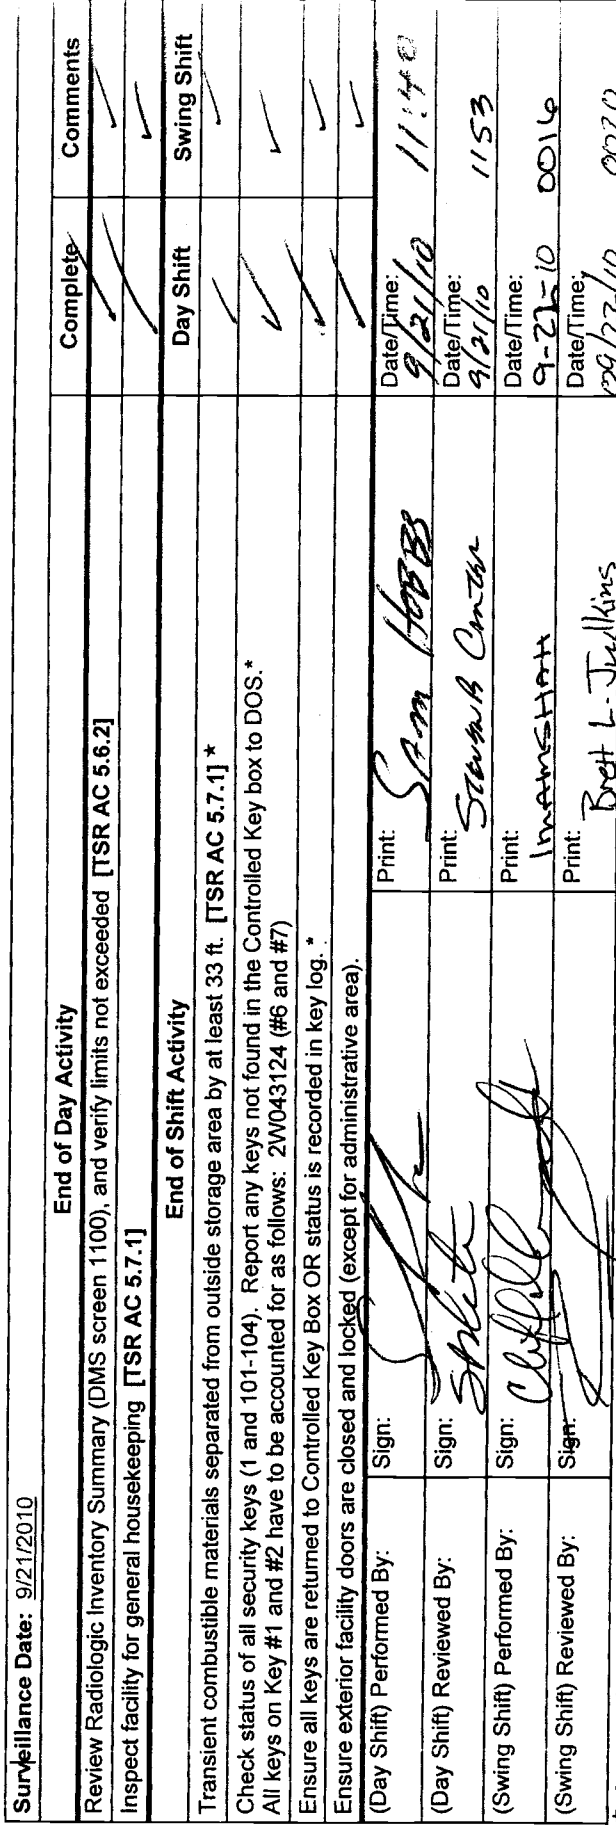 Surveillance Date: 9/21/2010
End of Day Activity Complete Comments
Review Radiologic Inventory Summary (DMS screen 1100), and verify limits not exceeded [TSR AC 5.6.2] ✓ ✓
Inspect facility for general housekeeping [TSR AC 5.7.1] ✓ ✓
End of Shift Activity Day Shift Swing Shift
Transient combustible materials separated from outside storage area by at least 33 ft. [TSR AC 5.7.1] * ✓ ✓
Check status of all security keys (1 and 101-104). Report any keys not found in the Controlled Key box to DOS.* ✓ ✓
All keys on Key #1 and #2 have to be accounted for as follows: 2W043124 (#6 and #7)
Ensure all keys are returned to Controlled Key Box OR status is recorded in key log. * ✓ ✓
Ensure exterior facility doors are closed and locked (except for administrative area). ✓ ✓
(Day Shift) Performed By: Sign: Print: Sam Hobbs Date/Time: 9/21/10 11:40
(Day Shift) Reviewed By: Sign: Print: Date/Time: 9/21/10 1153
(Swing Shift) Performed By: Sign: Print: Date/Time: 9-22-10 0016
(Swing Shift) Reviewed By: Sign: Print: Brett L. Judkins Date/Time: 09/22/10